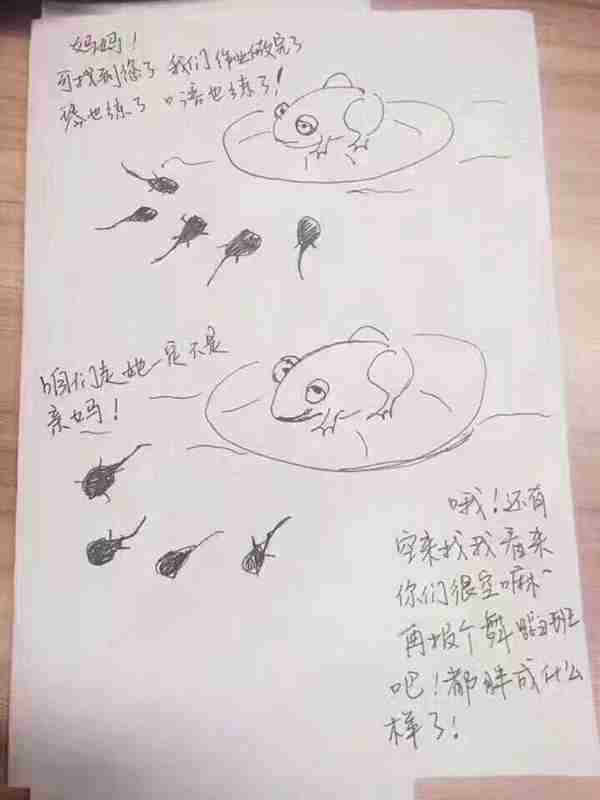 妈妈！
可找到您了 我们作业做完了
琴也练了 口语也练了！
咱们走她一定不是
亲妈！
哦！还有
空来找我 看来
你们很空嘛~
再报个舞蹈班
吧！都胖成什么
样了！